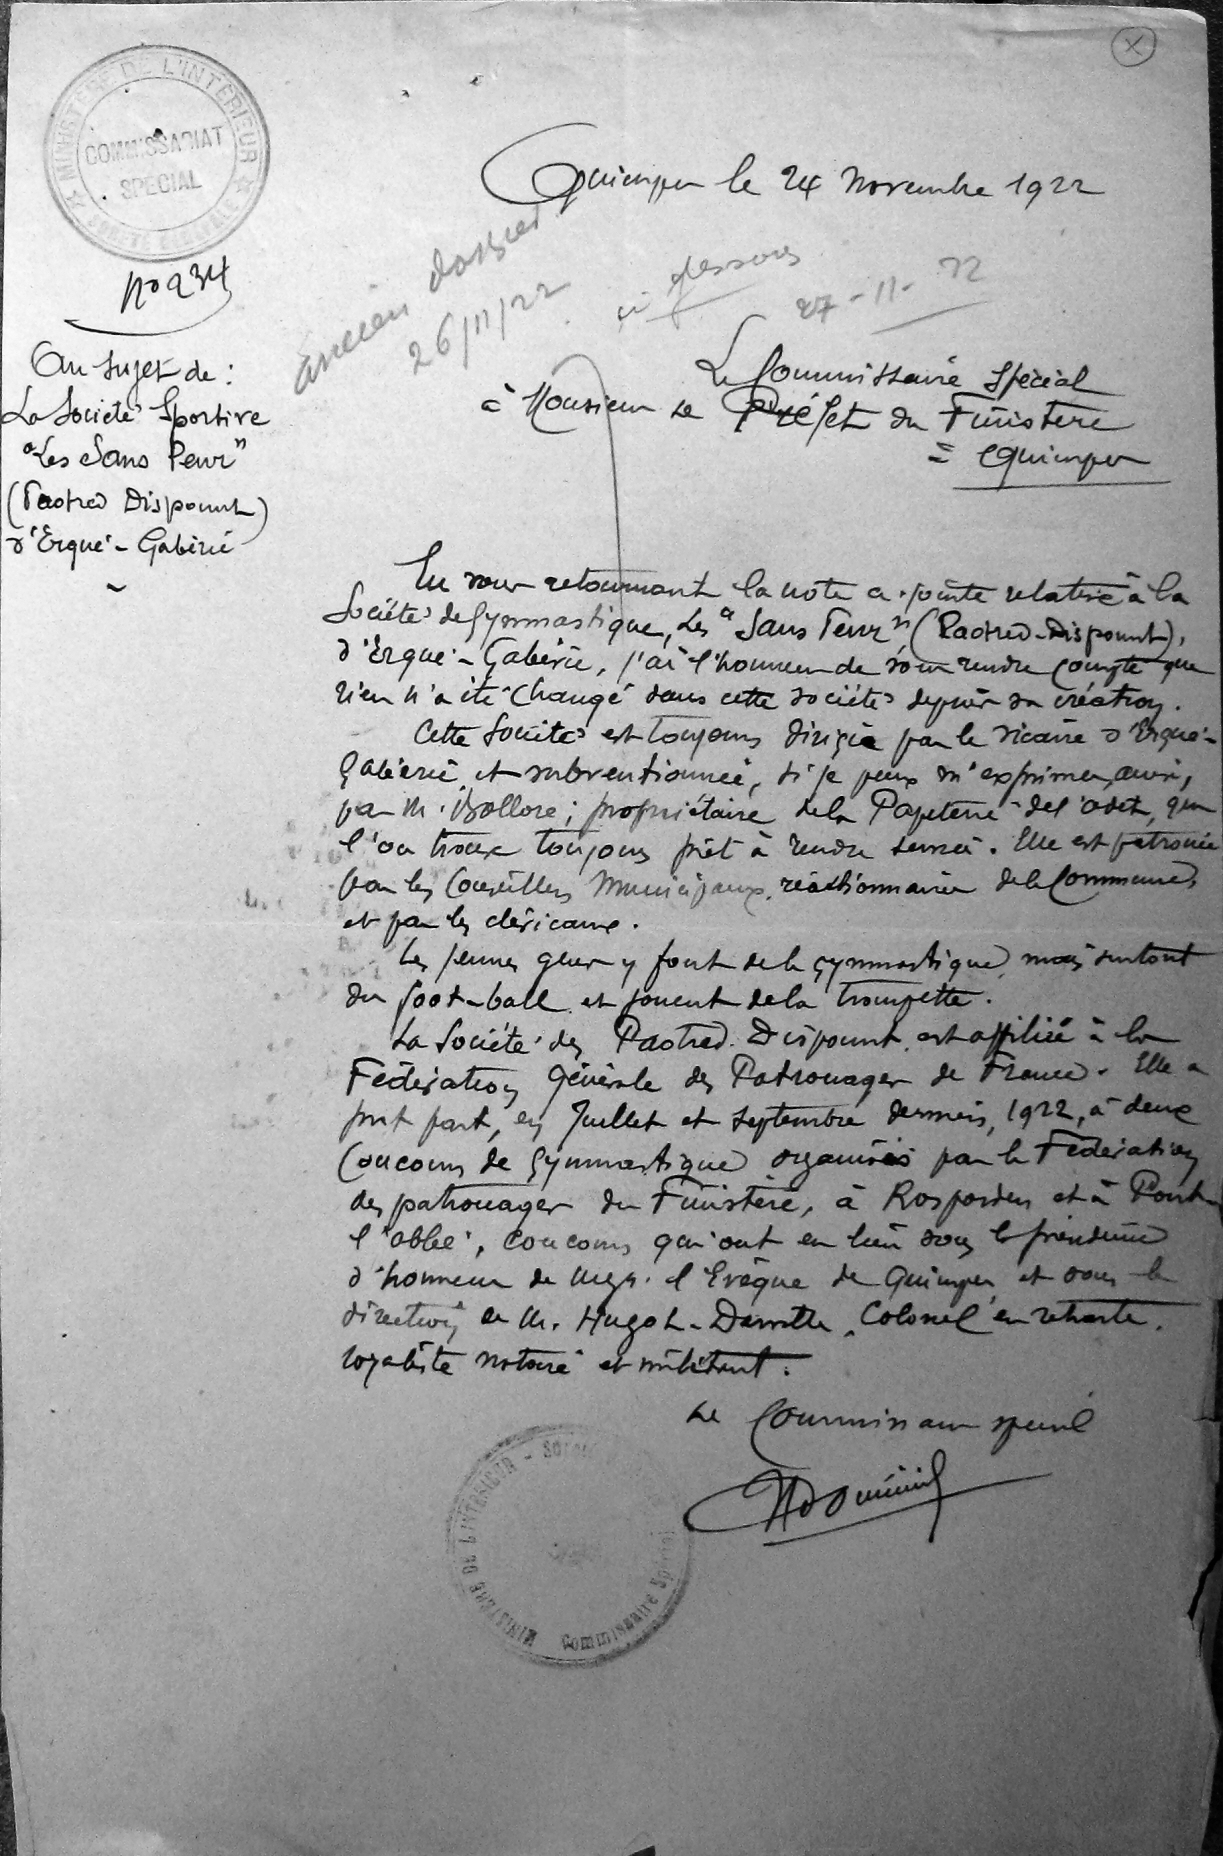 MINISTÈRE DE L'INTÉRIEUR
COMMISSARIAT
SPÉCIAL
SÛRETÉ GÉNÉRALE
Quimper le 24 Novembre 1922
No 234
ancien dossier
26/11/22
ci dessous
27-11-22
Au sujet de :
La Société Sportive
"Les Sans Peur"
(Paotred Dispount)
d'Ergué-Gabéric
Le Commissaire Spécial
à Monsieur le Préfet du Finistère
= Quimper
En vous retournant la note ci-jointe relative à la
Société de Gymnastique, Les "Sans Peur", (Paotred-Dispount),
d'Ergué-Gabéric, j'ai l'honneur de vous rendre compte que
rien n'a été changé dans cette société depuis sa création.
Cette Société est toujours dirigée par le vicaire d'Ergué-
Gabéric et subventionnée, si je peux m'exprimer ainsi,
par M. Bolloré ; propriétaire de la Papeterie de l'Odet, que
l'on trouve toujours prêt à rendre service. Elle est patronée
par les Conseillers Municipaux réactionnaires de la Commune,
et par les cléricaux.
Les jeunes gens y font de la gymnastique, mais surtout
du foot-ball et jouent de la trompette.
La Société des Paotred-Dispount est affiliée à la
Fédération Générale des Patronages de France. Elle a
prit part, en Juillet et Septembre derniers, 1922, à deux
Concours de Gymnastique organisés par la Fédération
des patronages du Finistère, à Rosporden et à Pont
l'abbé, concours qui ont eu lieu sous la présidence
d'honneur de Mgr. l'Evêque de Quimper et sous la
direction de M. Hugot-Derville, Colonel en retraite,
royaliste notoire et militant.
Le Commissaire spécial
MINISTÈRE DE L'INTÉRIEUR
Commissaire Spécial